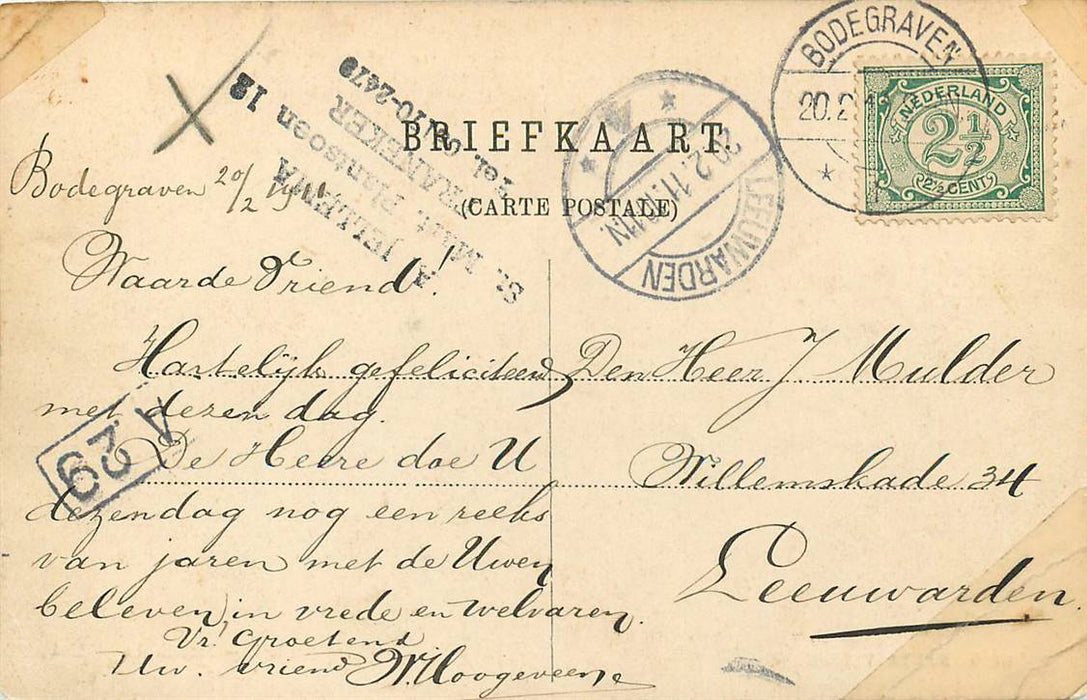 BRIEFKAART.
(CARTE POSTALE)
BODEGRAVEN
20.2
NEDERLAND
2½
2½ CENT
LEEUWARDEN
20.2.11
A. JELLEMA
St. Mart. Plantsoen 12
FRANEKER
Tel. 05170-2479
Bodegraven 20/2 1911
Waarde Vriend!
Hartelijk gefeliciteerd
met dezen dag.
De Heere doe U
dezen dag nog een reeks
van jaren met de Uwen
beleven, in vrede en welvaren.
Vr. Groetend
Uw. vriend W. Hoogeveene
A 29
Den Heer J Mulder
Willemskade 34
Leeuwarden.